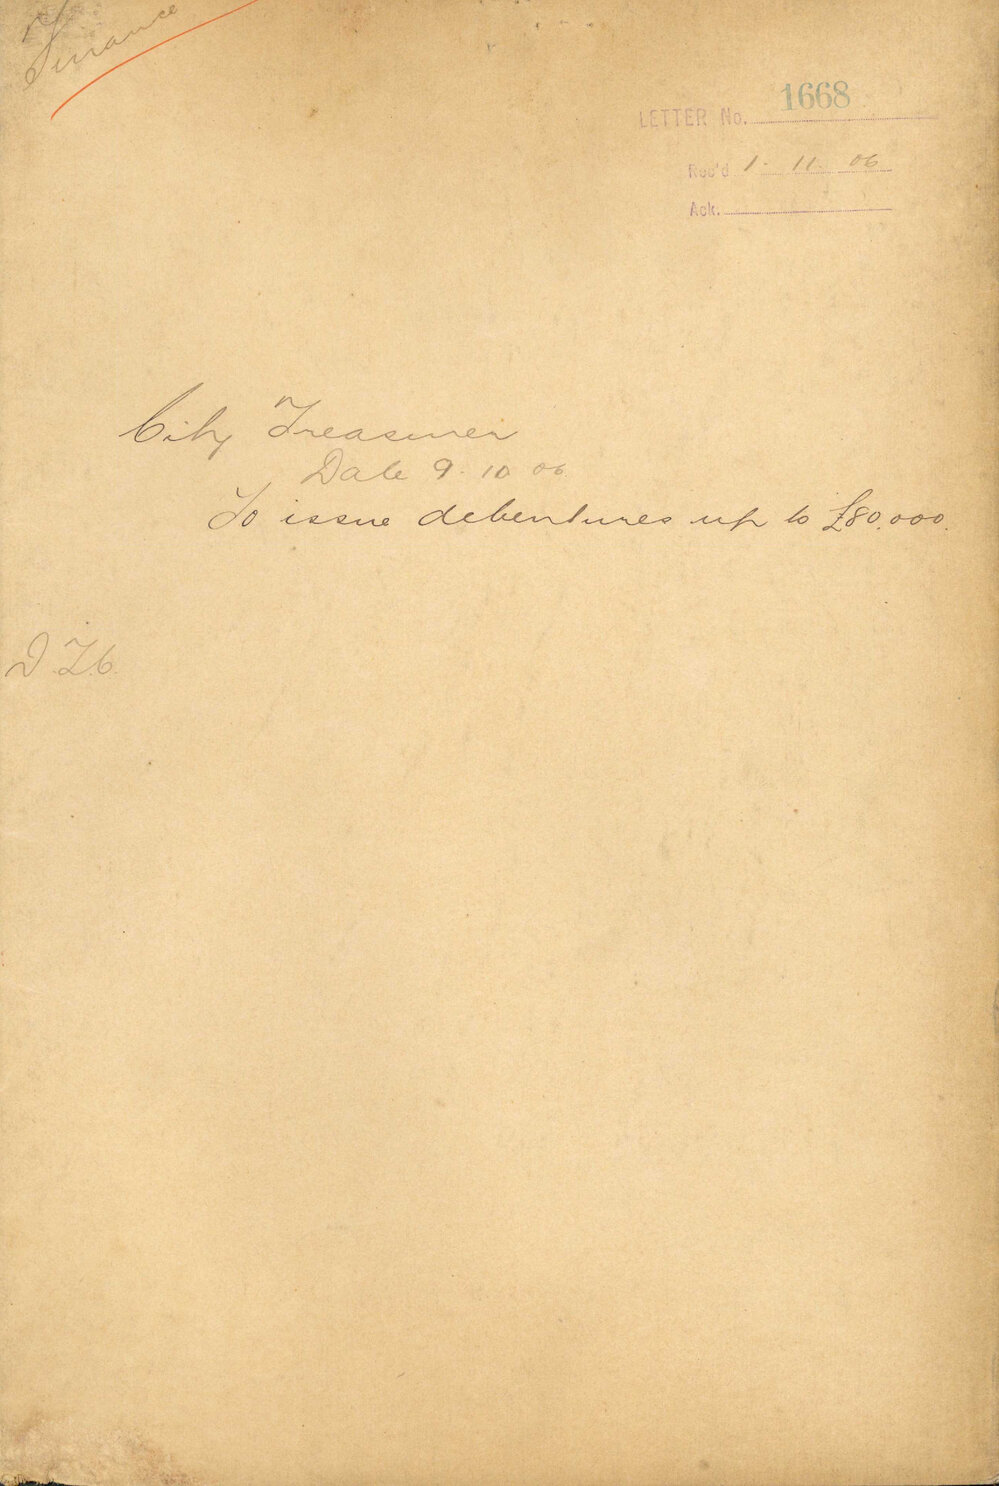 Finance
LETTER No. 1668
Rec'd 1. 11. 06
Ack.
City Treasurer
Date 9. 10 06
To issue debentures up to £80,000.